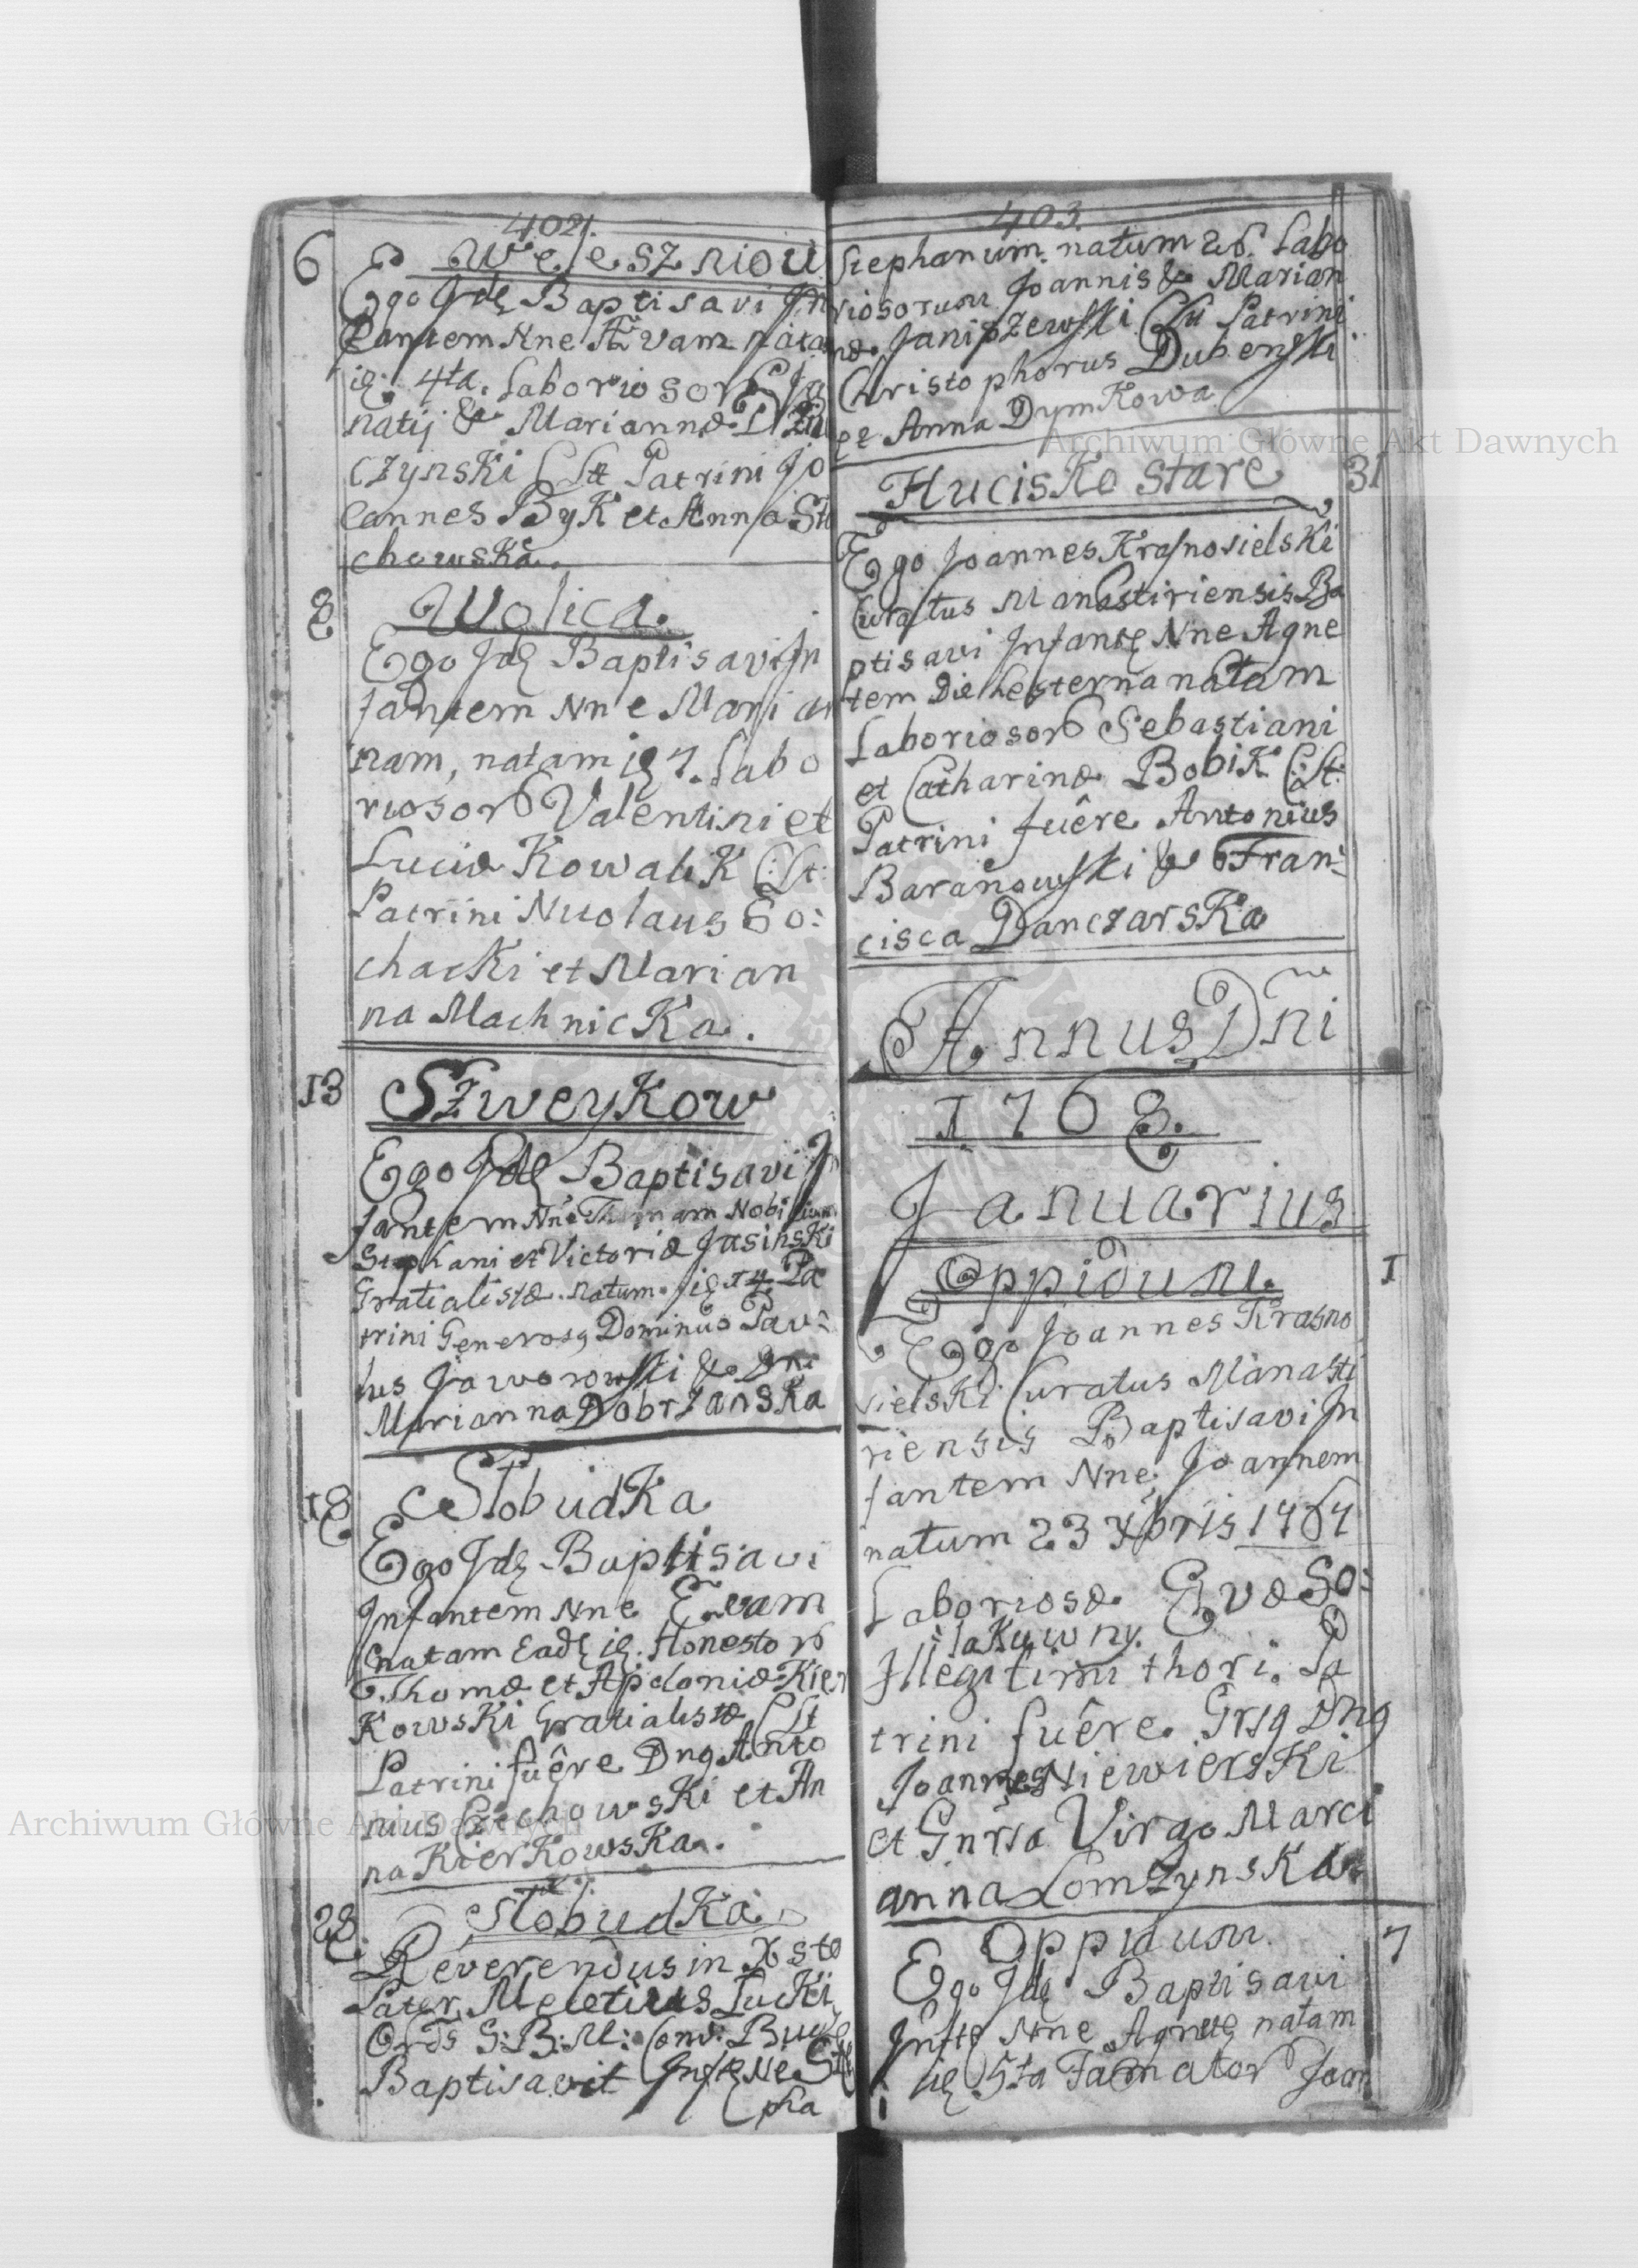 402.
6
Weleszniou
Ego Jdę Baptisavi Jn
fantem Nne Evam nata
ię 4ta. Laboriosor Jg
natij & Mariannæ
czynski CLtt Patrini Jo
annes Byk et Anna Sta
chowska.
8
Wolica.
Ego Jdę Baptisavi Jn
fantem Nne Mari an
nam, natam ię 7. Labo
riosor Valentini et
Luciæ Kowalik C:Lt:
Patrini Nicolaus So:
chacki et Marian
na Machnicka.
13
Szweykow
Ego Jdę Baptisavi Jn
fantem Nne Thomam Nobilium
Stephani et Victoriæ Jasinski
Gratialistæ. natum. ię 14 Pa
trini Generosq Dominus Pav:
lus Jaworowski & Dna
Marianna Dobrzanska
18
Slobudka
Ego Jdę Baptisavi
Jnfantem Nne Evam
natam Eadę ię. Honestor
Thomæ et Apoloniæ Kier
kowski Gratialistæ CLt
Patrini fuêre Dnq Anto
nius Czechowski et An
na Kierkowska.
28
Slobudka
Reverendus in Xsto
Pater Meletius Lucki
Ords S:B:M: Conv: Bucz
Baptisavit Jnftę Nne Ste
pha
403.
Stephanum. natum 26. Labo
riosorum Joannis & Marian
næ. Janiszewski CLtt Patrini
Christophorus Dubenski
et Anna Dymkowa
Hucisko stare
31
Ego Joannes Krasnosielski
Curatus Manastiriensis Ba
ptisavi Jnfantę Nne Agne
tem Die hesterna natam
Laboriosor Sebastiani
et Catharinæ Bobik C:Lt:
Patrini fuêre Antonius
Baranowski & Fran:
cisca Danczarska
Annus Dñi
1768.
Januarius
Oppidum.
1
Ego Joannes Krasno
sielski Curatus Manasti
riensis Baptisavi Jn
fantem Nne Joannem
natum 23 Xbris 1767
Laboriosæ Evæ So:
:lakuwny.
Jllegitimi thori. Pa
trini fuêre. Grsq Dnq
Joannes Niewierski
et Gnrsa Virgo Mari
anna Lomzynska
Oppidum.
7
Ego Jdę Baptisavi
Jnftę Nne Agnetę natam
ię 5ta Famator Joan
Archiwum Główne Akt Dawnych
Archiwum Główne Akt Dawnych